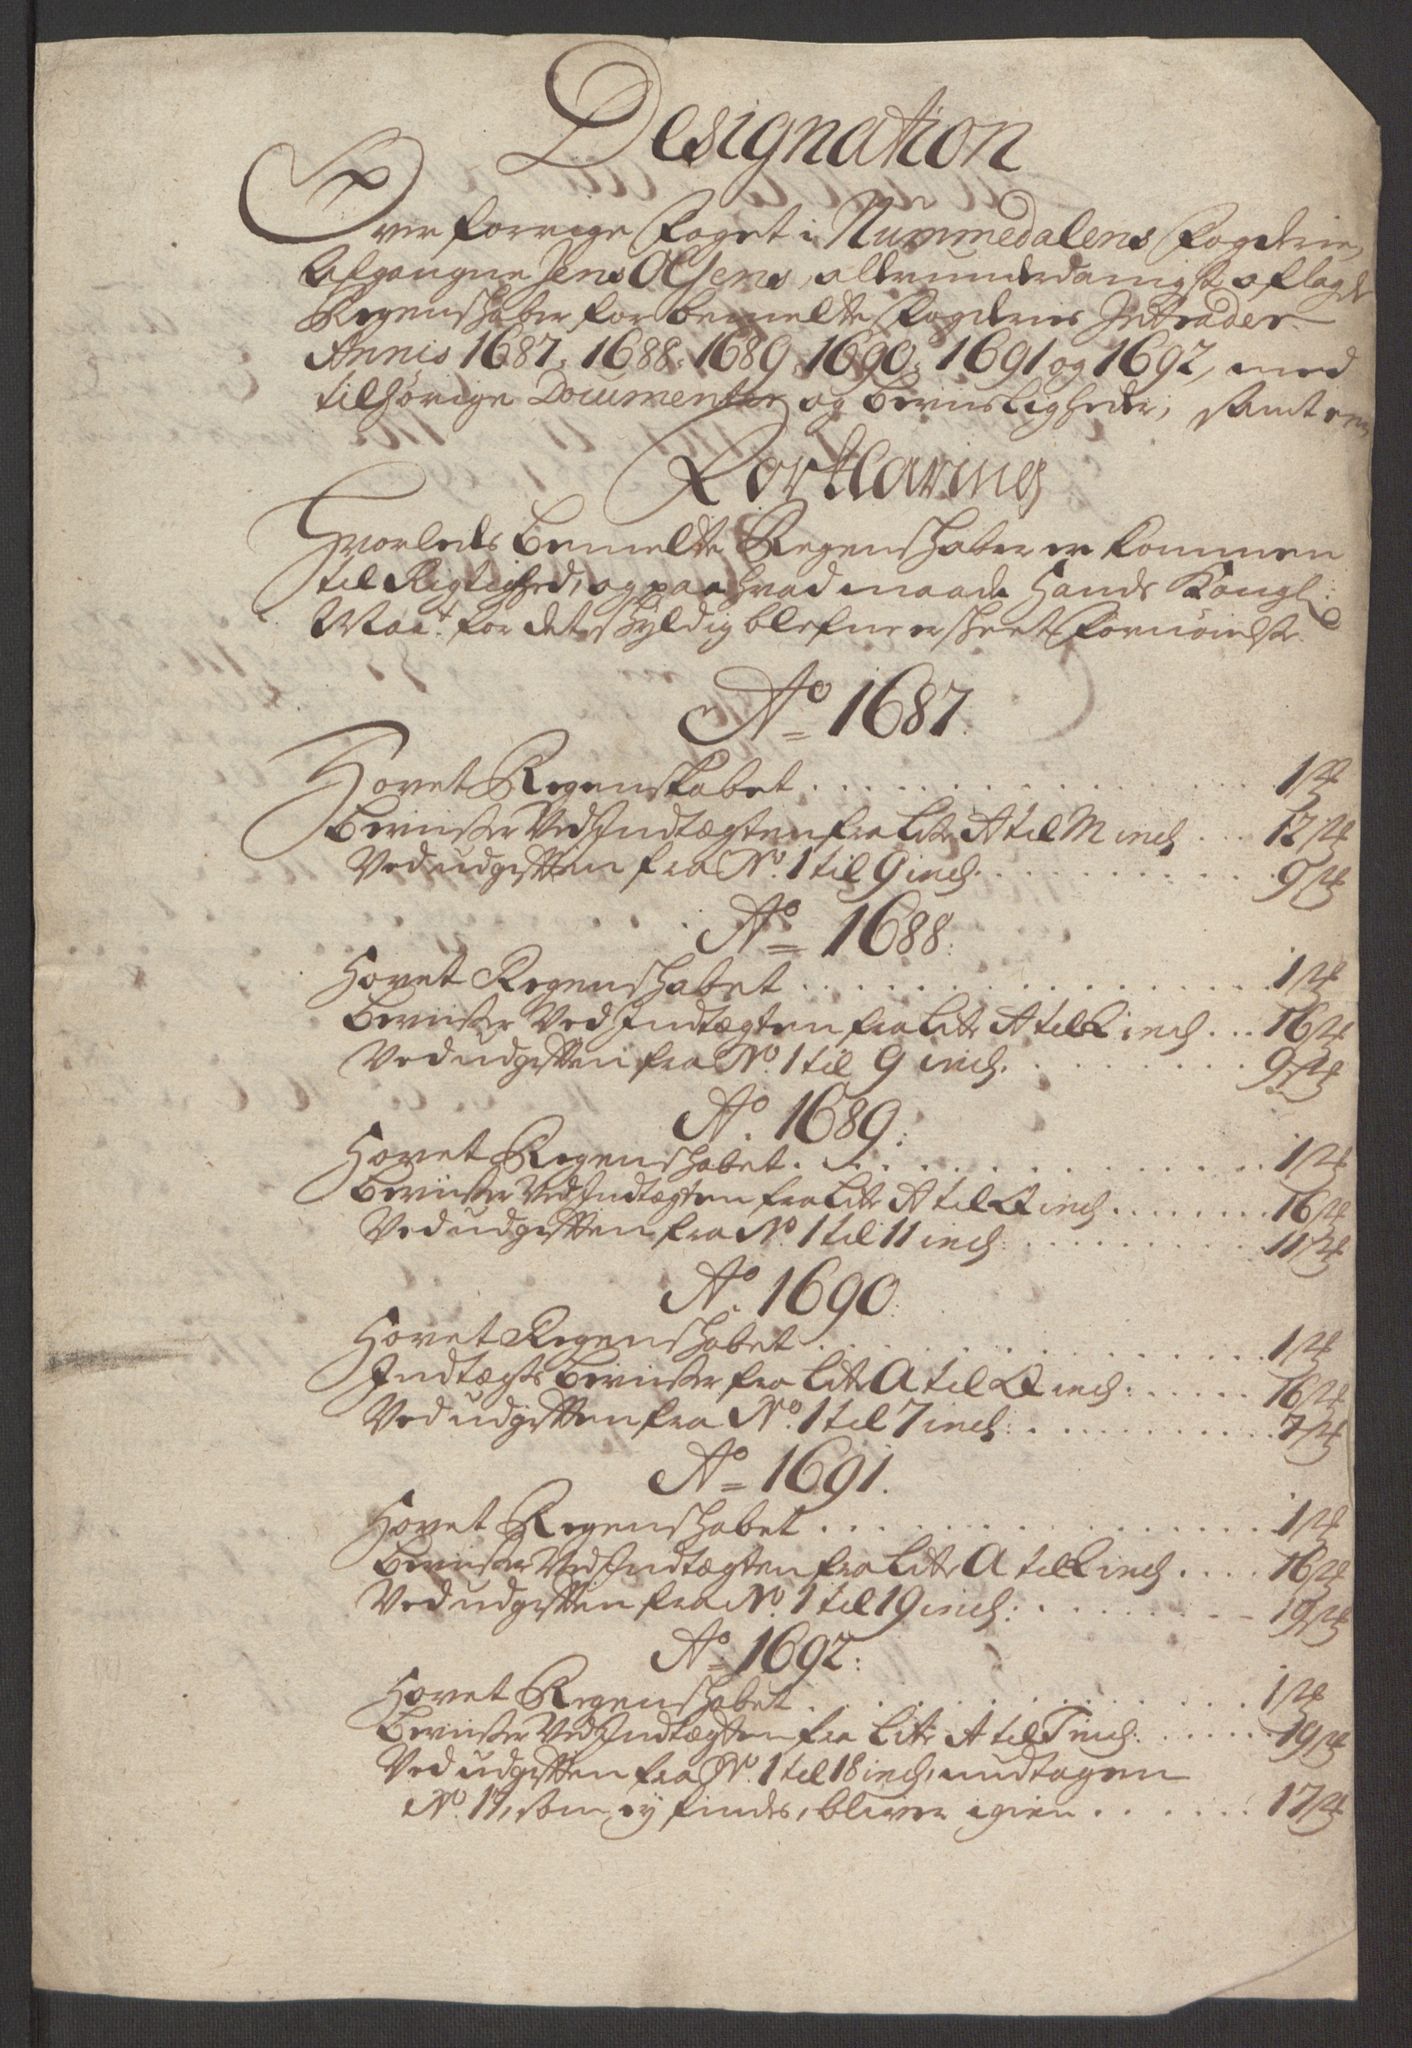 Designation
Over forrige Foget i Nummedalens Fogderie,
Afgangne Jens Olsens, allerunderdanigst aflagde
Regenschaber for bemelte Fogderies Intrader
Annis 1687, 1688, 1689, 1690, 1691 og 1692, med
tilhörige Documenter og beviisligheder, samt en
Forklaring
Hvorleds bemelte Regenschaber er kommen
til Rigtighed, og paa hvad maade Hands Kongl:
Mait. for det schyldig blefne er scheet Fornöielse.
Ao 1687.
Hovet Regenskabet . . . 1 st
Beviiser Ved Indtægten fra Litr A til M incl . . . 12 st
Ved udgiften fra No. 1 til 9 incl. . . . 9 st
Ao 1688:
Hovet Regenschabet . . . 1 st
Beviiser Ved Indtægten fra Litr A til Q incl . . . 16 st
Ved udgiften fra No. 1 til 9 incl. . . . 9 st
Ao. 1689:
Hovet Regenschabet . . . 1 st
Beviiser Ved Indtægten fra Litr A til Q incl. . . . 16 st
Ved udgiften fra No. 1 til 11 incl: . . . 11 st
Ao. 1690:
Hovet Regenschabet . . . 1 st
Indtægts Beviiser fra Litr A til Q incl: . . . 16 st
Ved udgiften fra No. 1 til 7 incl: . . . 7 st
Ao 1691.
Hovet Regenschabet . . . 1 st
Beviiser Ved Indtægten fra Litr A til Q incl . . . 16 st
Ved udgiften fra No. 1 til 19 incl: . . . 19 st
Ao 1692:
Hovet Regenschabet . . . 1 st
Beviiser Ved Indtægten fra Litr A til T incl: . . . 19 st
Ved udgiften fra No. 1 til 18 incl, undtagen
No. 17, som ey findes, bliver igien . . . 17 st